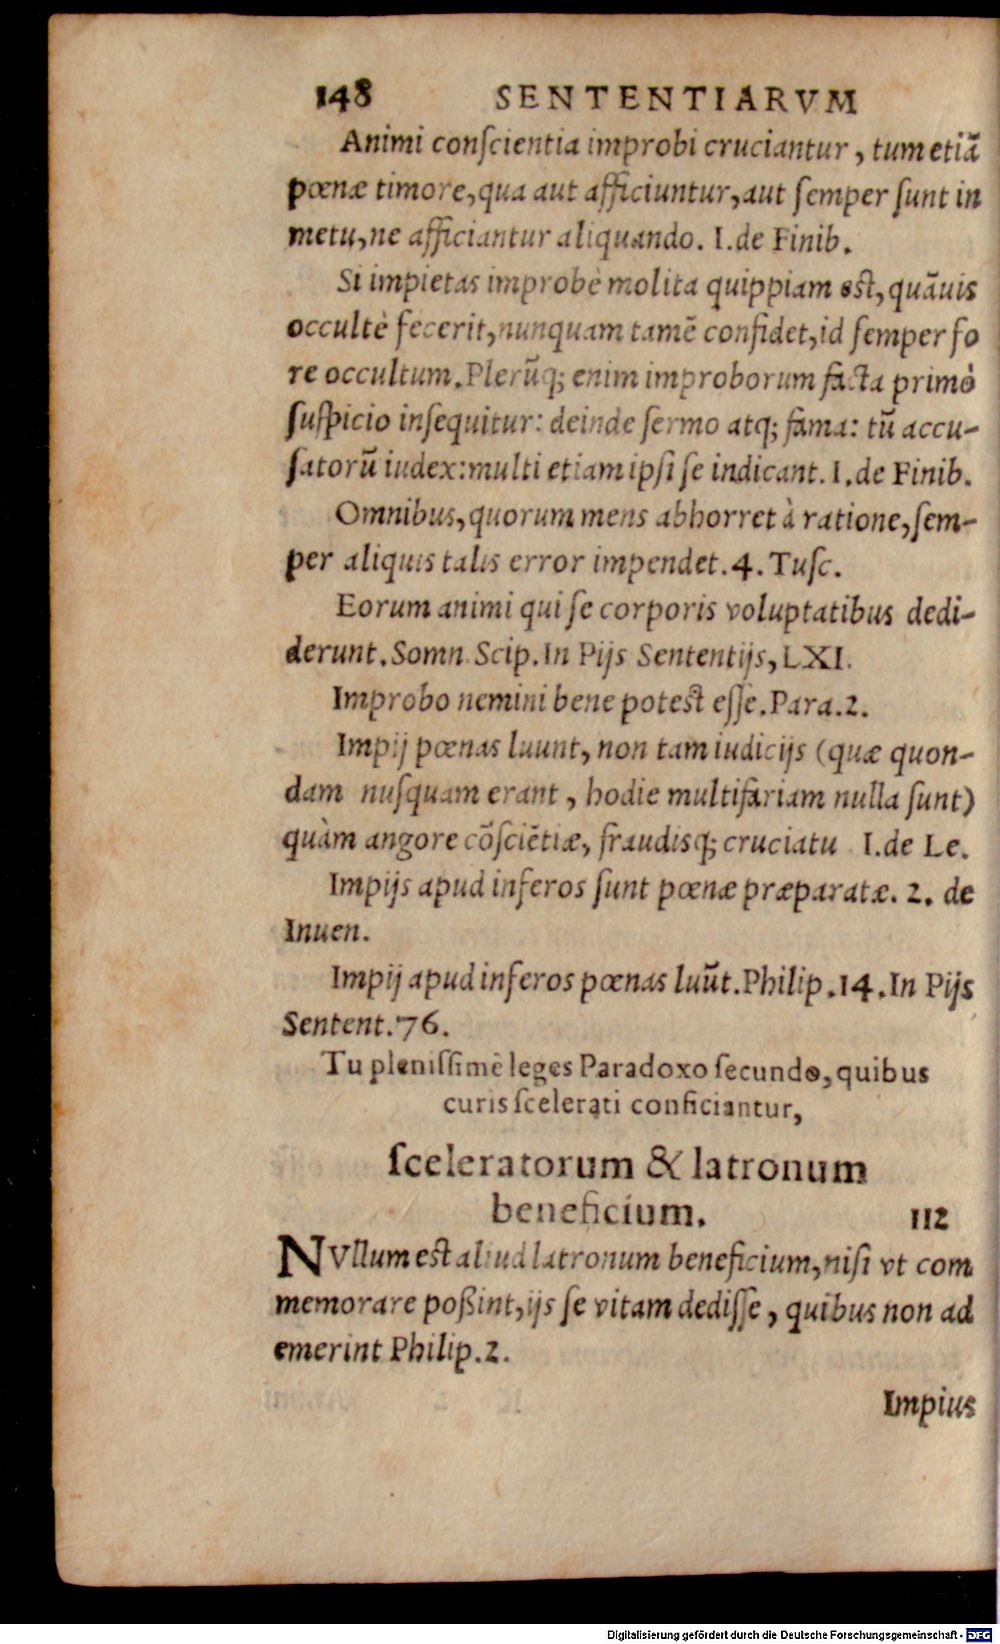 148 SENTENTIARVM
Animi conſcientia improbi cruciantur, tum etiã
pœnæ timore, qua aut afficiuntur, aut ſemper ſunt in
metu, ne afficiantur aliquando. I. de Finib.
Si impietas improbè molita quippiam est, quãuis
occultè fecerit, nunquam tamẽ confidet, id ſemper fo
re occultum. Plerũq; enim improborum facta primò
ſuſpicio inſequitur: deinde ſermo atq; fama: tũ accu-
ſatorũ iudex: multi etiam ipſi ſe indicant. I. de Finib.
Omnibus, quorum mens abhorret à ratione, ſem-
per aliquis talis error impendet. 4. Tuſc.
Eorum animi qui ſe corporis voluptatibus dedi-
derunt. Somn. Scip. In Pijs Sententijs, LXI.
Improbo nemini bene potest eſſe. Para. 2.
Impij pœnas luunt, non tam iudicijs (quæ quon-
dam nuſquam erant, hodie multifariam nulla ſunt)
quàm angore cõſciẽtiæ, fraudisq; cruciatu I. de Le.
Impijs apud inferos ſunt pœnæ præparatæ. 2. de
Inuen.
Impij apud inferos pœnas luũt. Philip. 14. In Pijs
Sentent. 76.
Tu pleniſſimè leges Paradoxo ſecundo, quibus
curis ſcelerati conficiantur,
ſceleratorum & latronum
beneficium. 112
NVllum est aliud latronum beneficium, niſi vt com
memorare poßint, ijs ſe vitam dediſſe, quibus non ad
emerint Philip. 2.
Impius
Digitalisierung gefördert durch die Deutsche Forschungsgemeinschaft - DFG